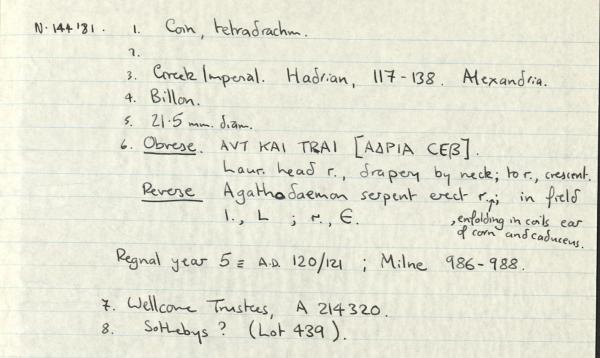 N.144'81. 1. Coin, tetradrachm.
2.
3. Greek Imperial. Hadrian, 117-138. Alexandria.
4. Billon.
5. 21.5 mm. diam.
6. Obverse. AVT KAI TRAI [AΔPIA CEB].
Laur. head r., drapery by neck; to r., crescent.
Reverse Agathodaemon serpent erect r.,; in field
l., L ; r., Є.
, enfolding in coils ear
of corn and caduceus.
Regnal year 5 ≡ A.D. 120/121 ; Milne 986-988.
7. Wellcome Trustees, A 214320.
8. Sothebys ? (Lot 439).